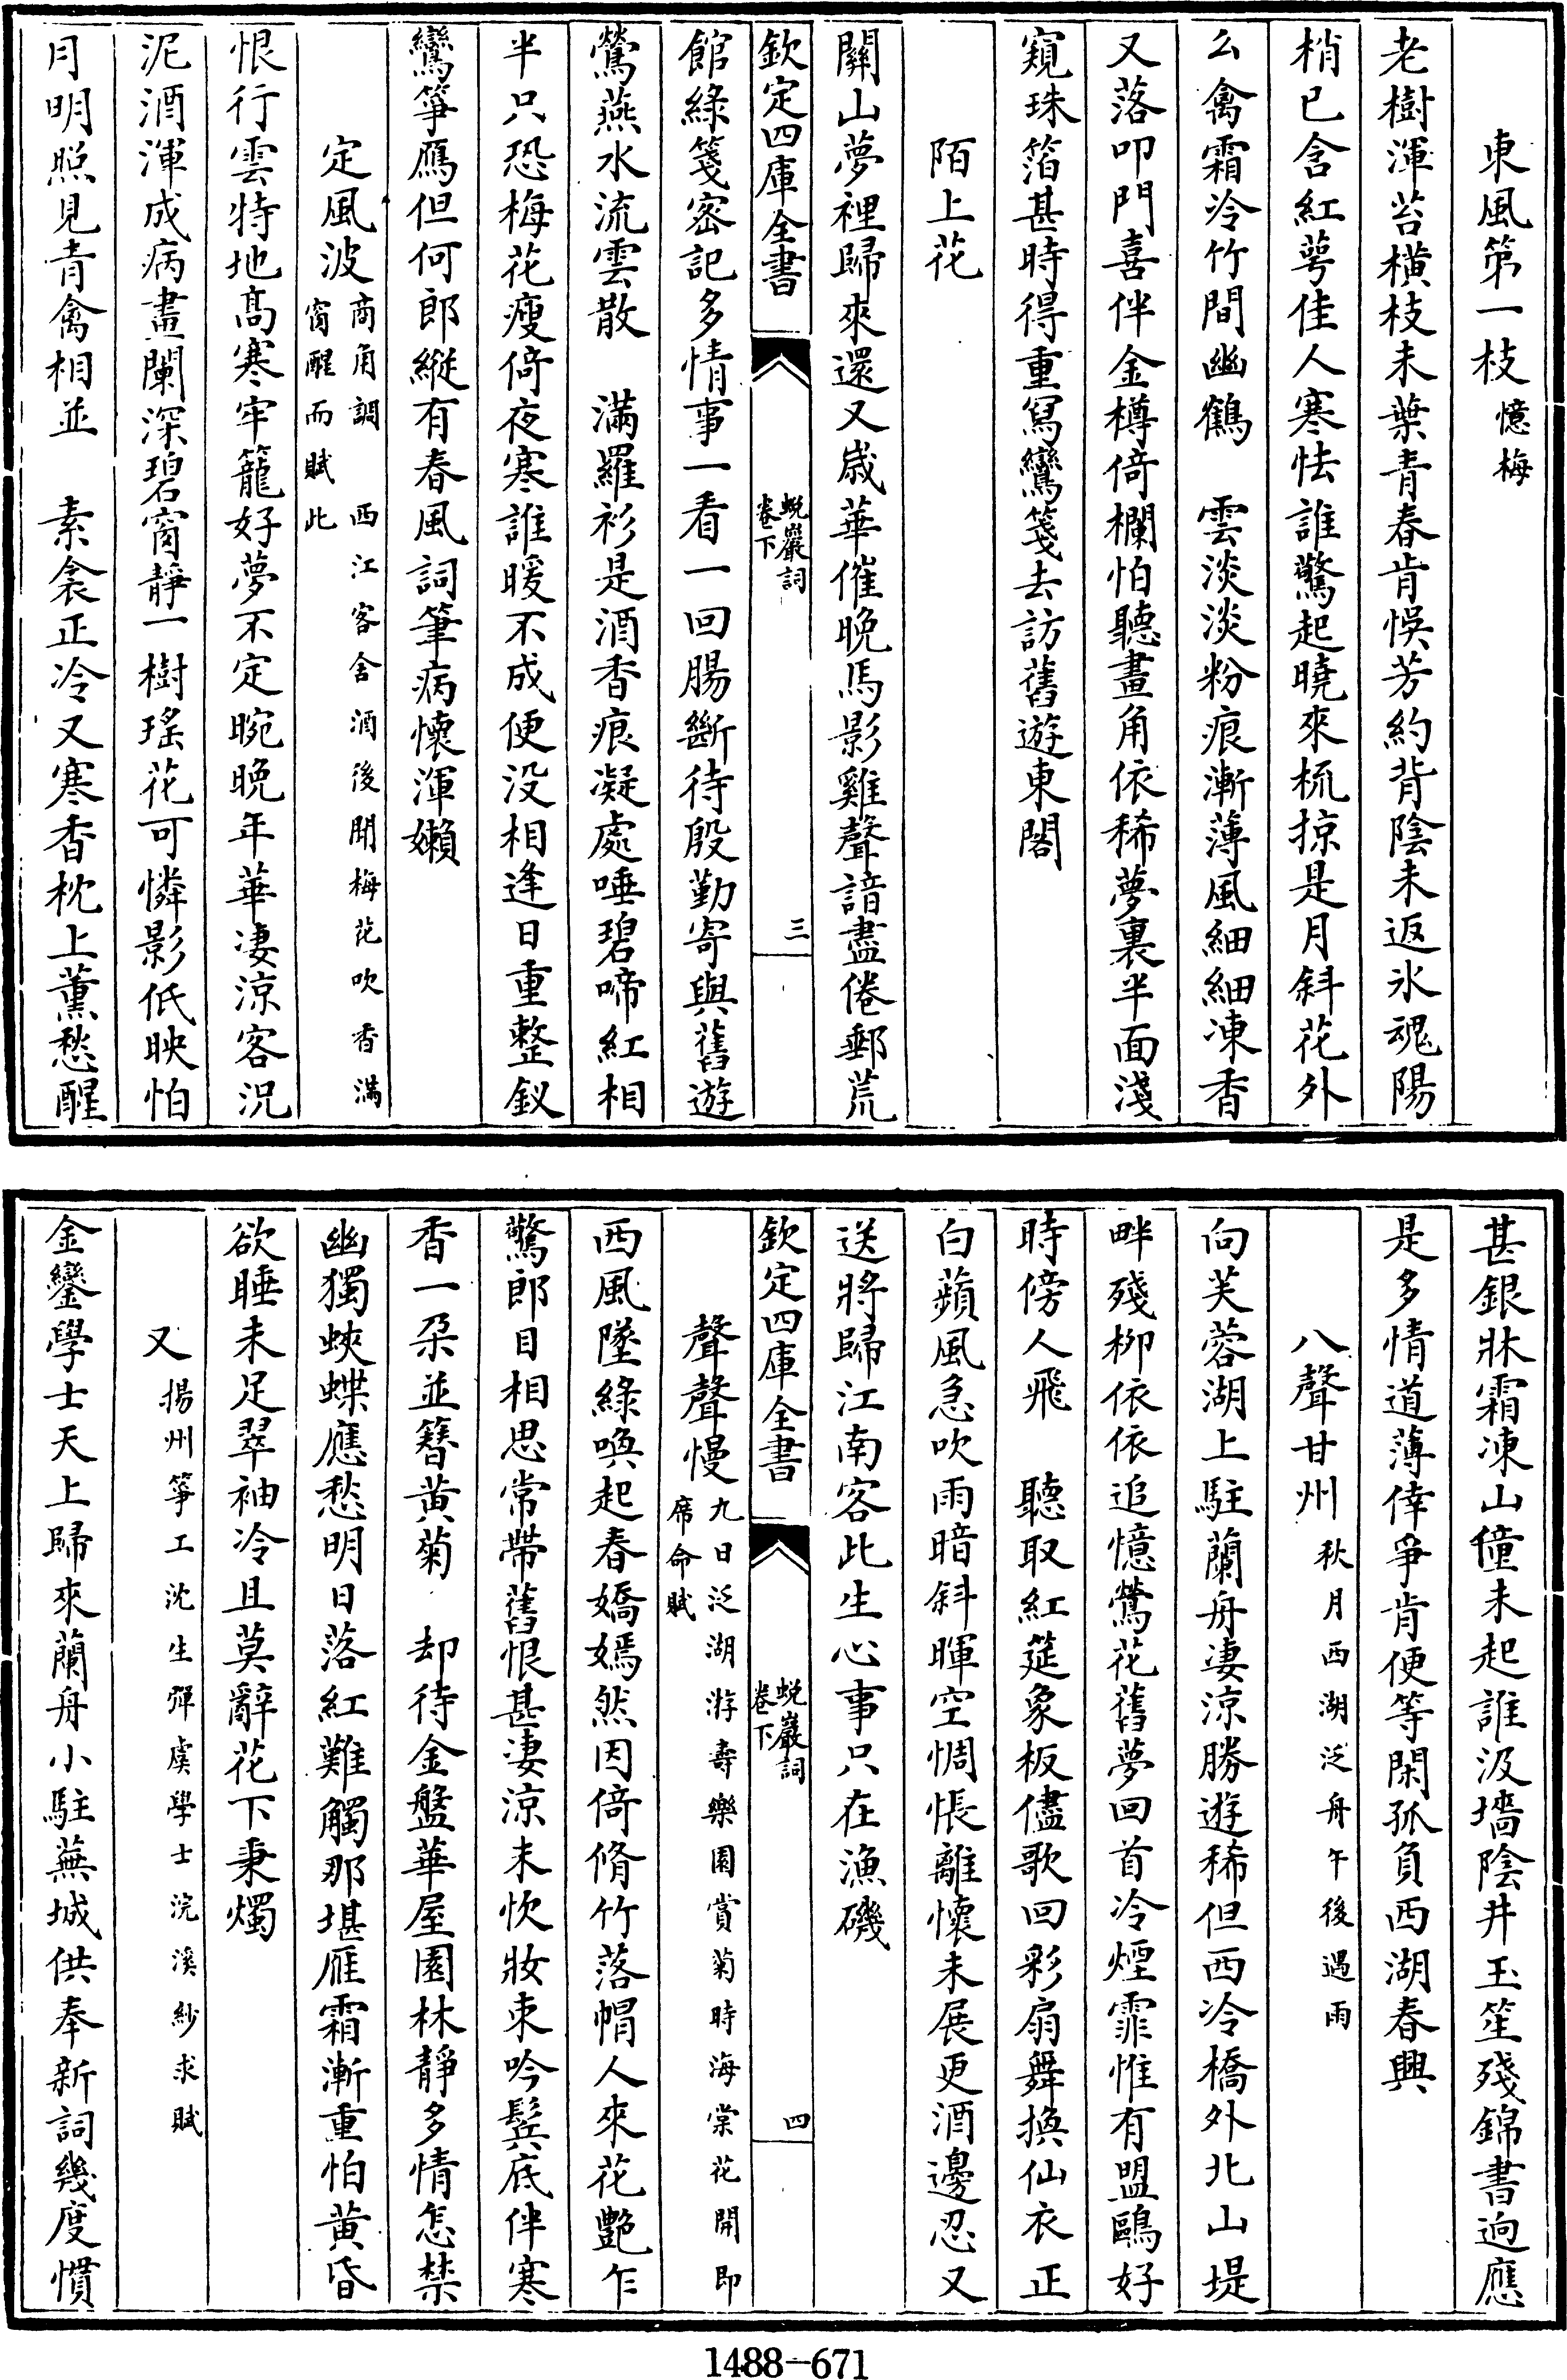 東風第一枝憶梅
老樹渾苔橫枝未葉青春肯悞芳約背陰未返氷魂陽
梢已含紅萼佳人寒怯誰驚起曉來梳掠是月斜花外
么禽霜冷竹間幽鶴　雲淡淡粉痕漸薄風細細凍香
又落叩門喜伴金樽倚欄怕聽畫角依稀夢裏半面淺
窺珠箔甚時得重寫鸞箋去訪舊遊東閣
陌上花
關山夢裡歸來還又歲華催晚馬影雞聲諳盡倦郵荒
欽定四庫全書
蛻巖詞
卷下
三
館綠箋密記多情事一看一回腸斷待殷勤寄與舊遊
鶯燕水流雲散　滿羅衫是酒香痕凝處唾碧啼紅相
半只恐梅花瘦倚夜寒誰暖不成便没相逢日重整釵
鸞箏鴈但何郎縱有春風詞筆病懷渾嬾
定風波商角調　西江客舍酒後聞梅花吹香滿
窗醒而賦此
恨行雲特地髙寒牢籠好夢不定晼晚年華凄涼客況
泥酒渾成病畫闌深碧窗靜一樹瑤花可憐影低映怕
月明照見青禽相並　素衾正冷又寒香枕上薰愁醒
甚銀牀霜凍山僮未起誰汲墻陰井玉笙殘錦書逈應
是多情道薄倖爭肯便等閑孤負西湖春興
八聲甘州秋月西湖泛舟午後遇雨
向芙蓉湖上駐蘭舟凄涼勝遊稀但西泠橋外北山堤
畔殘栁依依追憶鶯花舊夢回首冷煙霏惟有盟鷗好
時傍人飛　聽取紅筵象板儘歌回彩扇舞換仙衣正
白蘋風急吹雨暗斜暉空惆悵離懷未展更酒邊忍又
送將歸江南客此生心事只在漁磯
欽定四庫全書
蛻巖詞
卷下
四
聲聲慢九日泛湖游壽樂園賞菊時海棠花開即
席命賦
西風墜綠喚起春嬌嫣然因倚脩竹落帽人來花艶乍
驚郎目相思常帶舊恨甚凄涼未忺妝束吟鬂底伴寒
香一朶並簪黄菊　却待金盤華屋園林靜多情怎禁
幽獨蛺蝶應愁明日落紅難觸那堪雁霜漸重怕黄昏
欲睡未足翠袖冷且莫辭花下秉燭
又揚州箏工沈生彈虞學士浣溪紗求賦
金鑾學士天上歸來蘭舟小駐蕪城供奉新詞幾度慣
1488-671